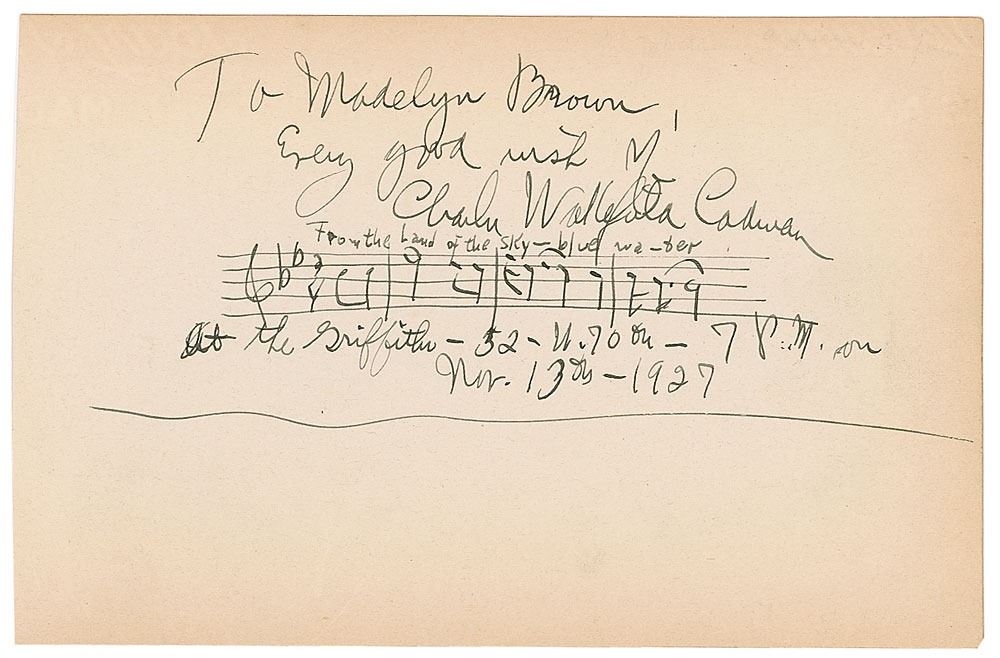 To Madelyn Brown,
Every good wish of
Charles Wakefield Cadman
From the Land of the sky-blue wa-ter
At the Griffiths - 52 - W. 70th - 7 P.M. on
Nov. 13th - 1927